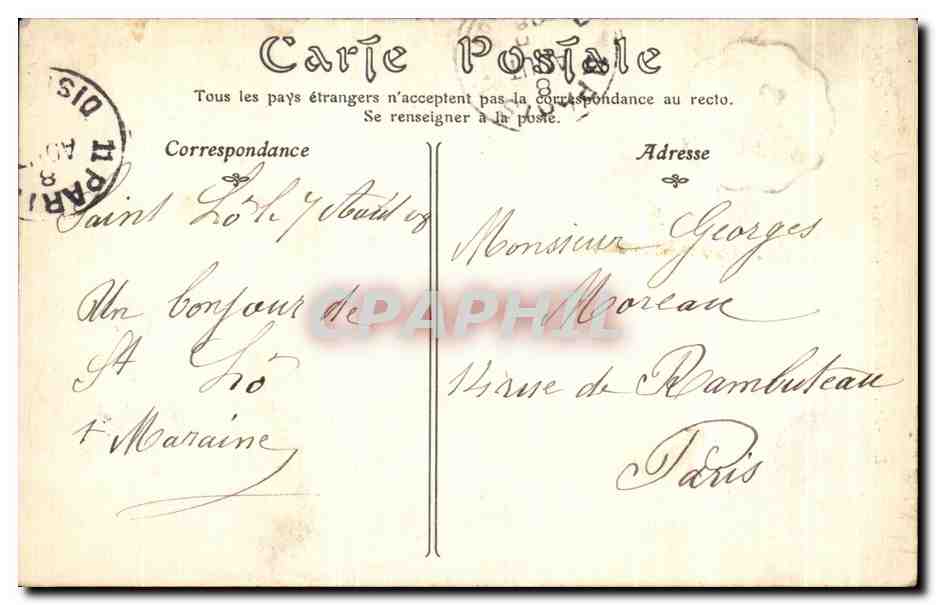 Carte Postale
Tous les pays étrangers n'acceptent pas la correspondance au recto.
Se renseigner à la poste.
Correspondance
Saint Lô le 7 Août 08
Un bonjour de
St Lô
Maraine
Adresse
Monsieur Georges
Moreau
14 rue de Rambuteau
Paris
CPAPHIL
DIS
11 PARI
8